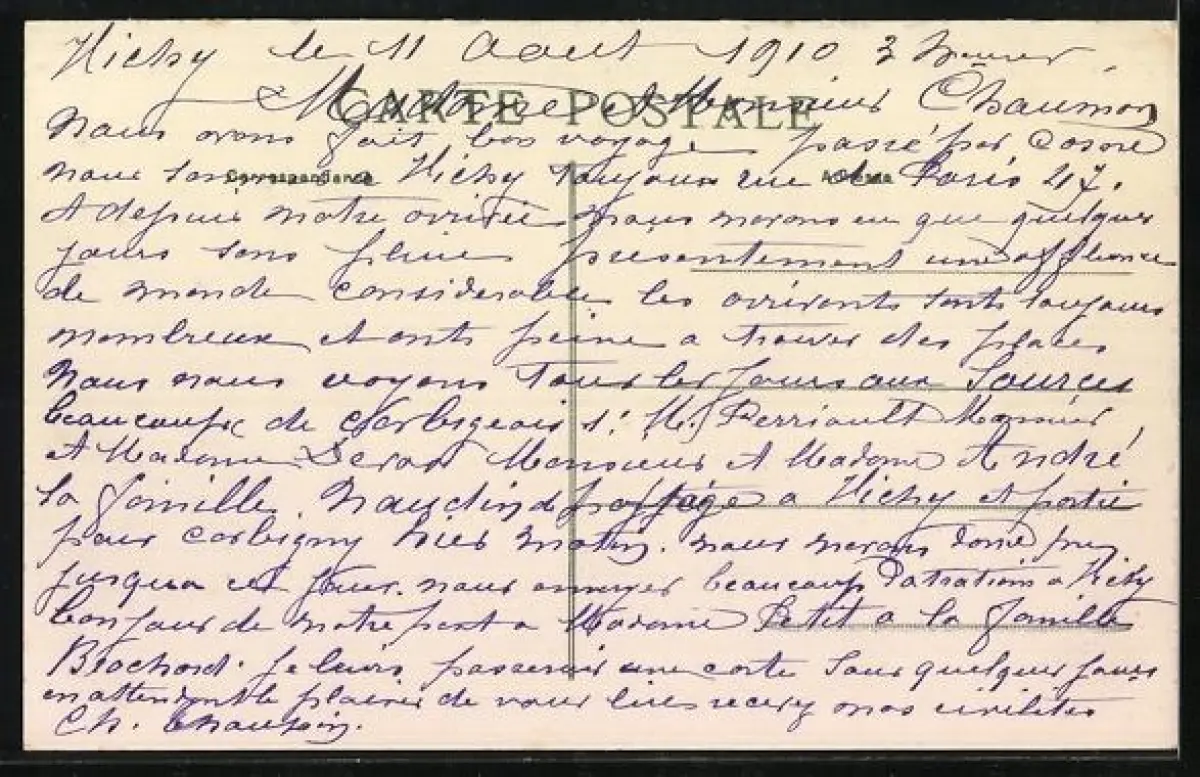 Vichy le 11 Aout 1910 3 heures
CARTE POSTALE
Madame et Monsieur Chaumon
Nous avons fait bon voyage passé par Cosne
Correspondance Adresse
nous sommes a Vichy toujours rue de Paris 47.
et depuis notre arrivée nous navons eu que quelques
jours sans pluie présentement une affluence
de monde considerable les arrivants sont toujours
nombreux et ont peine a trouver des places
Nous nous voyons tous les jours aux Sources
beaucoup de Corbigeois s: M. Perriault Monsieur
et Madame Monsieur et Madame André
la famille Naudin passage a Vichy et partie
pour Corbigny hier matin. nous navons donc pu
jusqua ce jour nous ennuyer beaucoup datrations a Vichy
bonjour de notre part a Madame Petit a la famille
Brochard. je leurs passerair une carte sous quelques jours
en attendant le plaisir de vous lire recevez nos civilités
Ch.